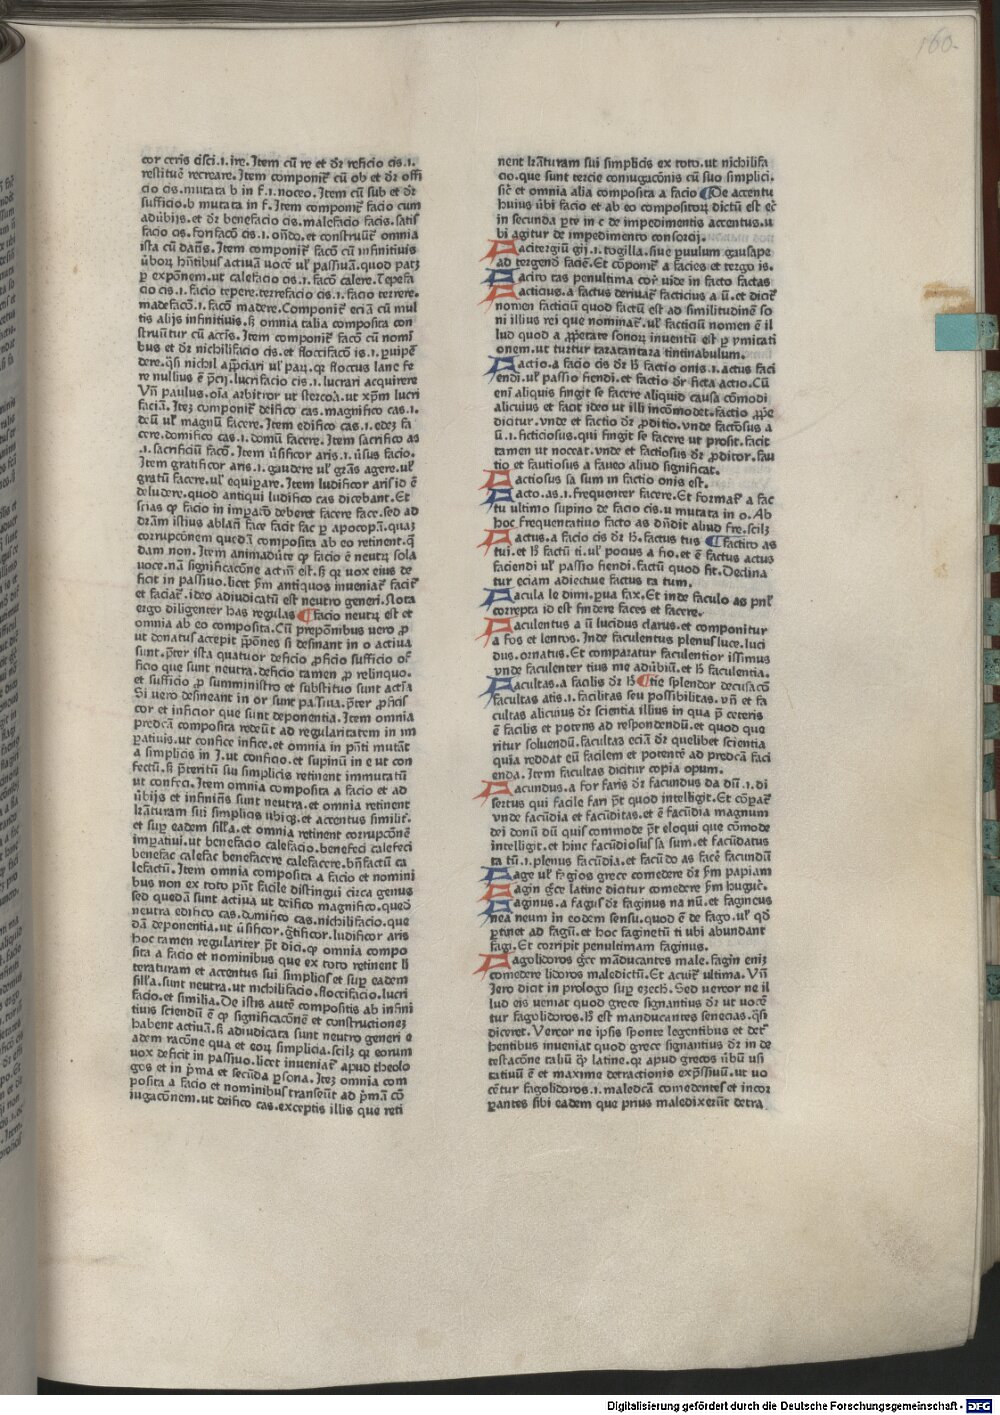 160.
cor ceris cisci.i.ire. Item cū re et dr̄ reficio cis.i.
restitue̾ recreare. Item componit᷑ cū ob et dr̄ offi
cio cis.mutata b in f.i.noceo. Item cū sub et dr̄
sufficio.b mutata in f. Item componit᷑ facio cum
adūbijs.et dr̄ benefacio cis.malefacio facis.satis
facio cis.forisfacō cis.i.
ista cū datīs. Item componit᷑ facō cū infinitiuis
ūboꝝ hn̄tibus actiuā uocē ul' passiuā.quod patꝫ
ꝑ exponēm.ut calefacio cis.i.facō calere. Tepefa
cio cis.i.facio tepere.terrefacio cis.i.facio terrere.
madefacō.i.facō madere. Componit᷑ eciā cū mul
tis alijs infinitiuis.sꝫ omnia talia composita con
struūtur cū accīs. Item componit᷑ facō cū nomī
bus et dr̄ nichilifacio cis.et floccifacō is.i.ꝑuipē
dere.q̄si nichil app̄ciari ul' parū.qꝛ floccus lane fe
re nullius ē p̄cij.lucrifacio cis.i.lucrari acquirere
Vn̄ paulus.oīa arbitror ut stercoā.ut xp̄m lucri
faciā. Iteꝫ componit᷑ deifico cas.magnifico cas.i.
deū ul' magnū facere. Item edifico cas.i.edeꝫ fa
cere.domifico cas.i.domū facere. Item sacrifico as
.i.sacrificiū facō. Item ūsificor aris.i.ūsus facio.
Item gratificor aris.i.gaudere ul' gr̄as agere.ul'
gratū facere.ul' equipare. Item ludificor aris id ē
deludere.quod antiqui ludifico cas dicebant. Et
scias ꝙ facio in imparō deberet facere face.sed ad
dr̄am istius ablatī face facit fac ꝑ apocopā.quaꝫ
corrupconēm quedā composita ab eo retinent.q̄
dam non. Item animadūte ꝙ facio ē neutꝝ sola
uoce.nā significacōne actiuū est.sꝫ qꝛ uox eius de
ficit in passiuo.licet ẜm antiquos inueniat᷑ facit᷑
et faciat᷑.ideo adiudicatū est neutro generi. Nota
ergo diligenter has regulas ¶facio neutꝝ est et
omnia ab eo composita. Cū prepōnibus uero ꝓ
ut donatus accepit p̄pōnes si desinant in o actiua
sunt.p̄ter ista quatuor deficio ꝓficio sufficio of
ficio que sunt neutra.deficio tamen ꝓ relinquo.
et sufficio ꝓ sumministro et substituo sunt actīa
Si uero desineant in or sunt passiua.p̄ter ꝓficis
cor et inficior que sunt deponentia. Item omnia
predcā composita recedūt ad regularitatem in im
ꝑatiuis.ut confice infice.et omnia in pn̄ti mutāt
a simplicis in J.ut conficio.et supinū in e ut con
fectū.sꝫ p̄teritū sui simplicis retinent immutatū
ut confeci. Item omnia composita a facio et ad
ūbijs et infinitīs sunt neutra.et omnia retinent
lr̄aturam sui simplicis ubiqꝫ.et accentus similit᷑.
et suꝑ eadem silľa.et omnia retinent corrupcōnē
imꝑatiui.ut benefacio calefacio.benefeci calefeci
benefac calefac benefacere calefacere.bn̄factū ca
lefactū. Item omnia composita a facio et nomini
bus non ex toto pn̄t facile distingui circa genus
sed quedā sunt actiua ut deifico magnifico.quedā
neutra edifico cas.domifico cas.nichilifacio.que
dā deponentia.ut ūsificor.gr̄tificor.ludificor aris
hoc tamen regulariter pt̄ dici.ꝙ omnia compo
sita a facio et nominibus que ex toto retinent li
teraturam et accentus sui simplicis et suꝑ eadem
silľa.sunt neutra.ut nichilifacio.floccifacio.lucri
facio.et similia. De istis autē compositis ab infini
tiuis sciendū ē ꝙ significacōnē et constructioneꝫ
habent actiuā.sꝫ adiudicata sunt neutro generi e
adem racōne qua et eoꝝ simplicia.scilꝫ qꝛ eorum
uox deficit in passiuo.licet inueniat᷑ apud theolo
gos et in p̄ma et secūda ꝑsona. Iteꝫ omnia com
posita a facio et nominibus transeūt ad p̄mā cō
iugacōnem.ut deifico cas.exceptis illis que reti
nent lr̄aturam sui simplicis ex toto.ut nichilifa
cio.que sunt tercie coniugacōnis cū suo simplici.
sic̄ et omnia alia composita a facio ¶De accentu
huius ūbi facio et ab eo compositorꝫ dictū est ec̄
in secunda ꝑte in c de impedimentis accentus.u
bi agitur de impedimento consorcij.
Facitergiū gij.i.togilla.siue ꝑuulum gausape
ad tergend̄ facīe. Et cōponit᷑ a facies et tergo is.
Facito tas penultima cor᷑ uide in facto factas
Facticius.a factus deriuat᷑ facticius a ū.et dicit᷑
nomen facticiū quod factū est ad similitudinē so
ni illius rei que nominat᷑.ul' facticiū nomen ē il
lud quod a ꝓprietate sonorꝫ inuentū est ꝑ ymitati
onem.ut turtur taratantara tintinabulum.
Factio.a facio cis dr̄ hꝫ factio onis.i.actus faci
endi.ul' passio fiendi.et factio dr̄ ficta actio. Cū
enī aliquis fingit se facere aliquid causa cōmodi
alicuius et facit ideo ut illi incōmodet.factio ꝓpe
dicitur.vnde et factio dr̄ ꝓditio.vnde factōsus a
ū.i.ficticiosus.qui fingit se facere ut prosit.facit
tamen ut noceat.vnde et factiosus dr̄ ꝓditor.fau
tio et fautiosus a faueo aliud significat.
Factiosus sa sum in factio onis est.
Facto.as.i.frequenter facere. Et format᷑ a fac
tu ultimo supino de facio cis.u mutata in o. Ab
hoc frequentatiuo facto as dn̄dit aliud fre.scilꝫ
Factus.a facio cis dr̄ h̄.factus tus ¶factito as
tui.et hꝫ factū ti.ul' pocius a fio.et ē factus actus
faciendi ul' passio fiendi.factū quod fit. Declina
tur eciam adiectiue factus ta tum.
Facula le dimi.ꝑua fax. Et inde faculo as pn̄l'
correpta id est findere faces et facere.
Faculentus a ū lucidus clarus.et componitur
a fos et lentos. Inde faculentus plenus luce.luci
dus.ornatus. Et comparatur faculentior issimus
vnde faculenter tius me adūbiū.et hꝫ faculentia.
Facultas.a facilis dr̄ hꝫ ¶tie splendor decusacō
facultas atis.i.facilitas seu possibilitas.vn̄ et fa
cultas alicuius dr̄ scientia illius in qua p̄ ceteris
ē facilis et potens ad respondendū.et quod que
ritur soluendū.facultas eciā dr̄ quelibet scientia
quia reddat eū facilem et potentē ad predcā faci
enda. Item facultas dicitur copia opum.
Facundus.a for faris dr̄ facundus da dū.i.di
sertus qui facile fari pt̄ quod intelligit. Et cōpat᷑
vnde facūdia et facūditas.et ē facūdia magnum
dei donū dū quis commode pt̄ eloqui que cōmode
intelligit.et hinc facūdiosus sa sum.et facūdatus
ta tū.i.plenus facūdia.et facūdo as facē facundū
Fage ul' fagios grece comedere dr̄ ẜm papiam
Fagin gr̄ce latine dicitur comedere ẜm huguc̄.
Faginus.a fagus dr̄ faginus na nū.et fagineus
nea neum in eodem sensu.quod ē de fago.ul' qd̄
ꝑtinet ad fagū.et hoc faginetū ti ubi abundant
fagi. Et corripit penultimam faginus.
Fagolidoros gr̄ce māducantes male.fagin eniꝫ
comedere lidoros maledictū. Et acuit᷑ ultima. Vn̄
Jero dicit in prologo suꝑ ezech̄. Sed uereor ne il
lud eis ueniat quod grece signantius dr̄ ut uocē
tur fagolidoros.h̄ est manducantes senecias.q̄si
diceret. Vereor ne ipsis sponte legentibus et det᷑
hentibus inueniat quod grece signantius dr̄ in de
testacōne taliū ꝙ latine.qꝛ apud grecos ūbū usi
tatiuū ē et maxime detractionis exp̄ssiuū.ut uo
cētur fagolidoros.i.maledcā comedentes et incor
ꝑantes sibi eadem que prius maledixerūt detra
Digitalisierung gefördert durch die Deutsche Forschungsgemeinschaft - DFG